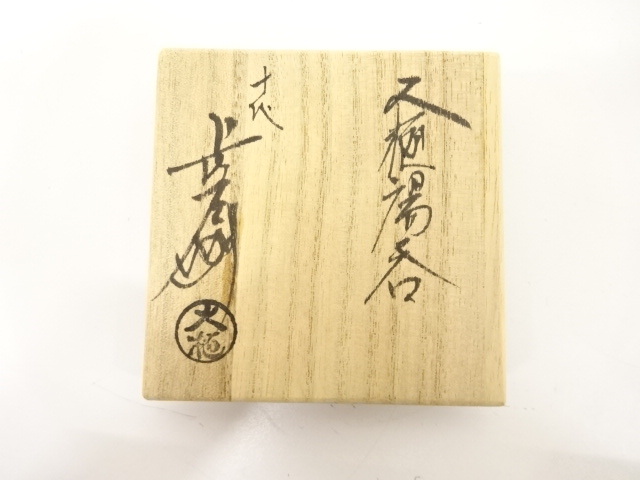 大樋湯呑
十代
長左衛門
大樋